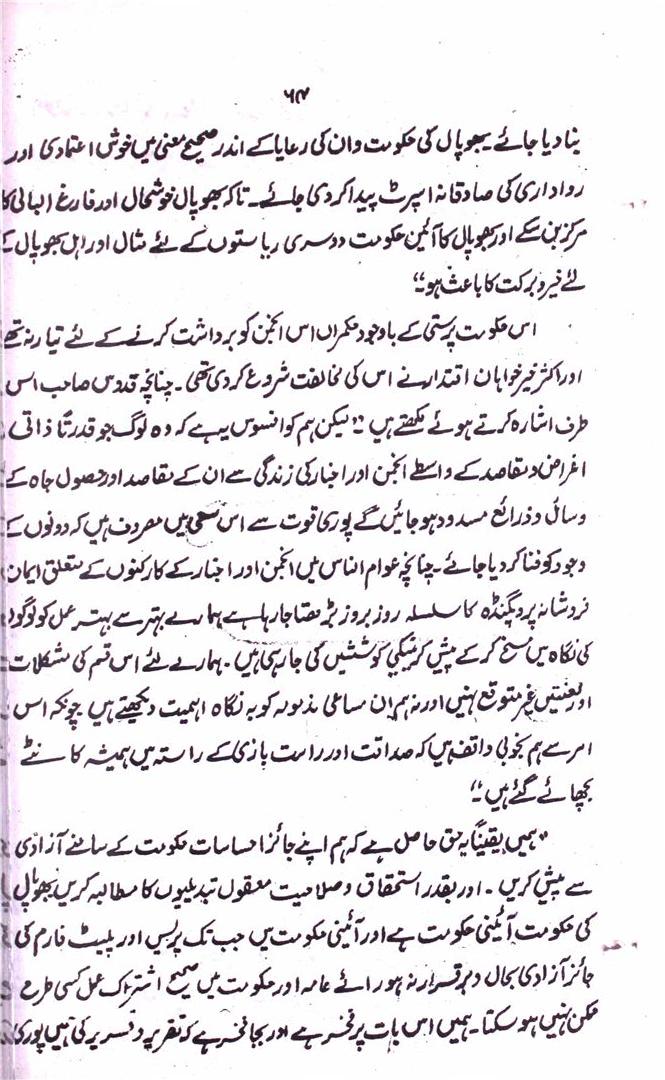 ۶۷
بنا دیا جائے۔ بھوپال کی حکومت و ان کی رعایا کے اندر صحیح معنی میں خوش اعتمادی اور
رواداری کی صادقانہ اسپرٹ پیدا کر دی جائے۔ تاکہ بھوپال خوشحال اور فارغ البالی کا
مرکز بن سکے اور بھوپال کا آئین حکومت دوسری ریاستوں کے لئے مثال اور اہل بھوپال کے
لئے خیر و برکت کا باعث ہو۔“
اس حکومت پرستی کے باوجود حکمراں اس انجمن کو برداشت کرنے کے لئے تیار نہ تھے
اور اکثر خیرخواہان اقتدار نے اس کی مخالفت شروع کر دی تھی۔ چنانچہ قدوس صاحب اس
طرف اشارہ کرتے ہوئے لکھتے ہیں ”لیکن ہم کو افسوس یہ ہے کہ وہ لوگ جو قدرتاً ذاتی
اغراض و مقاصد کے واسطے انجمن اور اخبار کی زندگی سے ان کے مقاصد اور حصول جاہ کے
وسائل و ذرائع مسدود ہو جائیں گے پوری قوت سے اس سعی میں مصروف ہیں کہ دونوں کے
وجود کو فنا کر دیا جائے۔ چنانچہ عوام الناس میں انجمن اور اخبار کے کارکنوں کے متعلق ایمان
فروشانہ پروپگنڈہ کا سلسلہ روز بروز بڑھتا جا رہا ہے ہمارے بہتر سے بہتر عمل کو لوگوں
کی نگاہ میں مسخ کر کے پیش کرنیکی کوششیں کی جا رہی ہیں۔ ہمارے لئے اس قسم کی مشکلات
اور لعنتیں غیر متوقع نہیں اور نہ ہم ان مساعی مذبوحہ کو بہ نگاہ اہمیت دیکھتے ہیں چونکہ اس
امر سے ہم بخوبی واقف ہیں کہ صداقت اور راست بازی کے راستہ میں ہمیشہ کانٹے
بچھائے گئے ہیں۔“
”ہمیں یقیناً یہ حق حاصل ہے کہ ہم اپنے جائز احساسات حکومت کے سامنے آزادی
سے پیش کریں۔ اور بقدر استحقاق و صلاحیت معقول تبدیلیوں کا مطالبہ کریں بھوپال
کی حکومت آئینی حکومت ہے اور آئینی حکومت میں جب تک پریس اور پلیٹ فارم کی
جائز آزادی بحال و برقرار نہ ہو رائے عامہ اور حکومت میں صحیح اشتراک عمل کسی طرح
ممکن نہیں ہو سکتا۔ ہمیں اس بات پر فخر ہے اور بجا فخر ہے کہ تقریر و تحریر کی ہمیں پوری